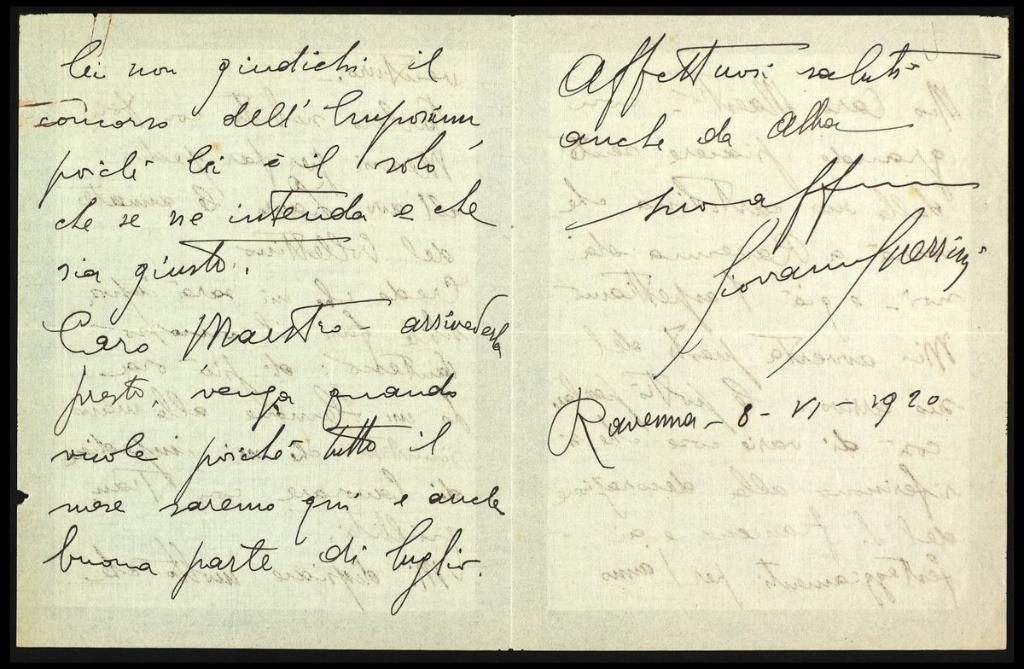 lei non giudichi il
concorso dell'
poiché lei è il solo
che se ne intenda e che
sia giusto.
Caro Maestro - arrivederla
presto, venga quando
vuole poiché tutto il
mese saremo qui e anche
buona parte di luglio.
Affettuosi saluti
anche da Alba
suo aff
Giovanni Guerrini
Ravenna - 8 - VI - 1920